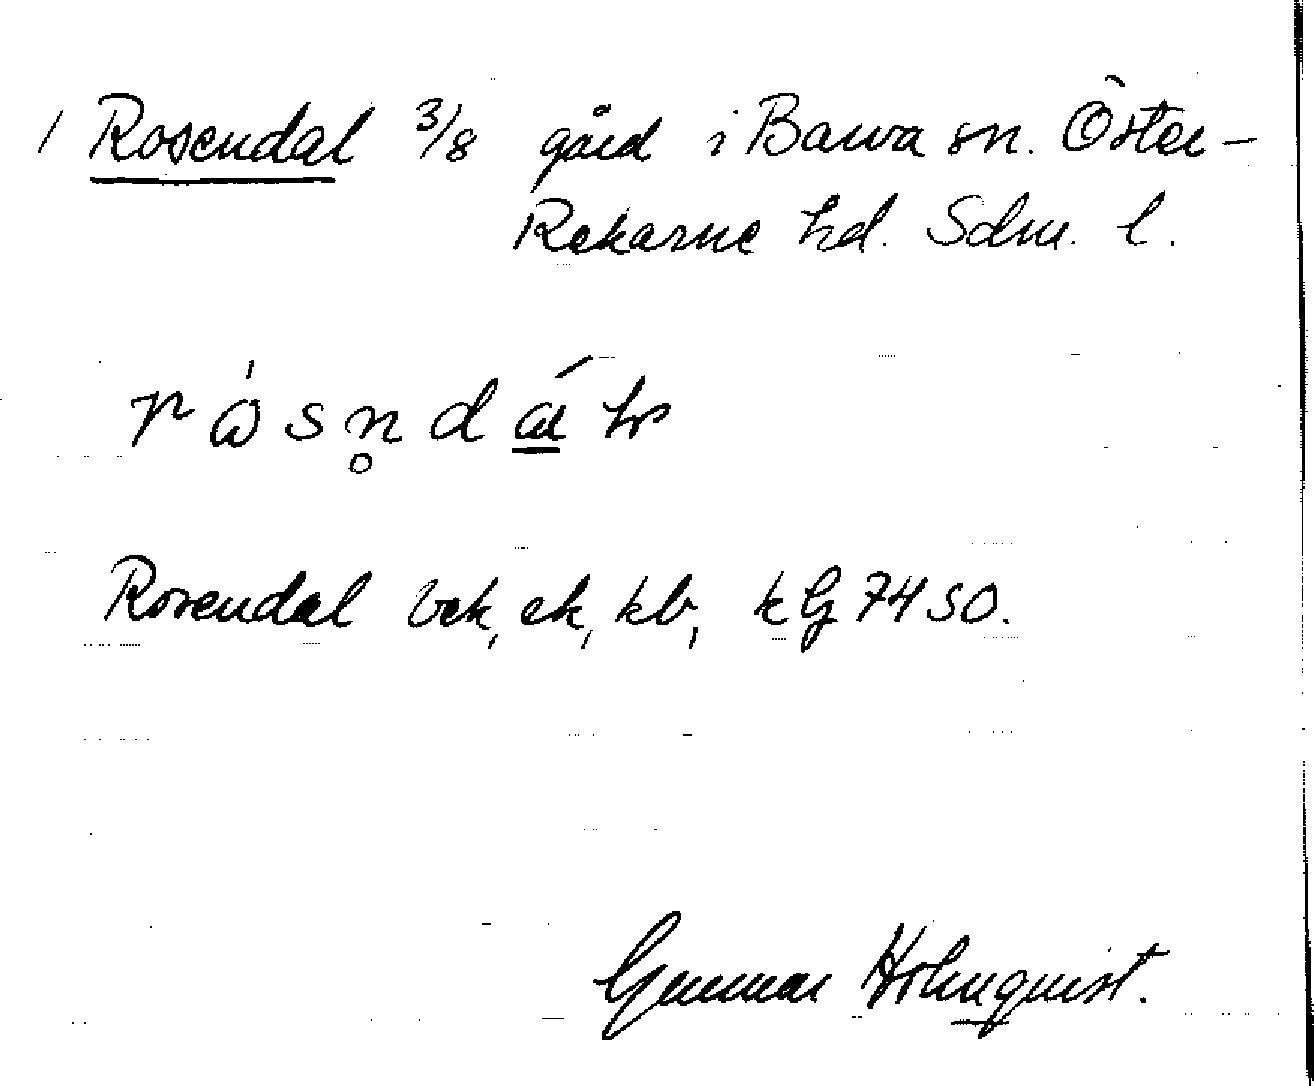 1 Rosendal 3/8 gård i Barva sn. Öster-
Rekarne hd. Sdm. l.
Rosendal bek, ek, kb, kG 7450.
Gunnar Holmquist.